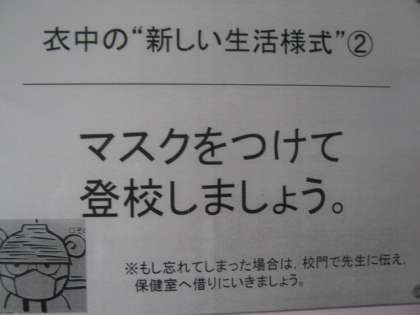 衣中の“新しい生活様式”②
マスクをつけて
登校しましょう。
※もし忘れてしまった場合は，校門で先生に伝え，
保健室へ借りにいきましょう。